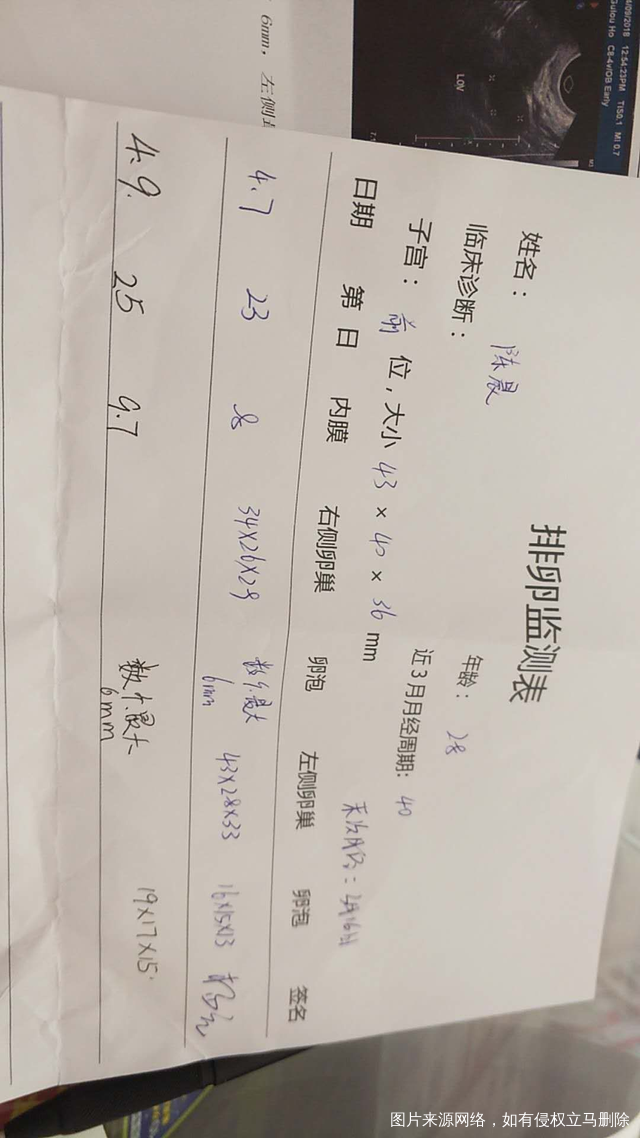 排卵监测表
姓名： 陈晨 年龄： 28
临床诊断： 近3月月经周期： 40
子宫： 前 位，大小 43 × 40 × 36 mm
日期 第 日 内膜 右侧卵巢 卵泡 左侧卵巢 卵泡 签名
4.7 23 8 34×26×29 数个最大 6mm 43×28×33 16×15×13
4.9. 25 9.7 数个最大 6mm 19×17×15.
6mm，左侧
4/09/2018 12:54:23PM TIS0.1 MI 0.7
Gulou Ho C8-4v/OB Early
LOV
图片来源网络，如有侵权立马删除